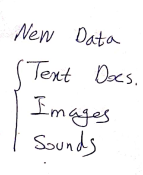 New Data
Text Docs.
Images
Sounds